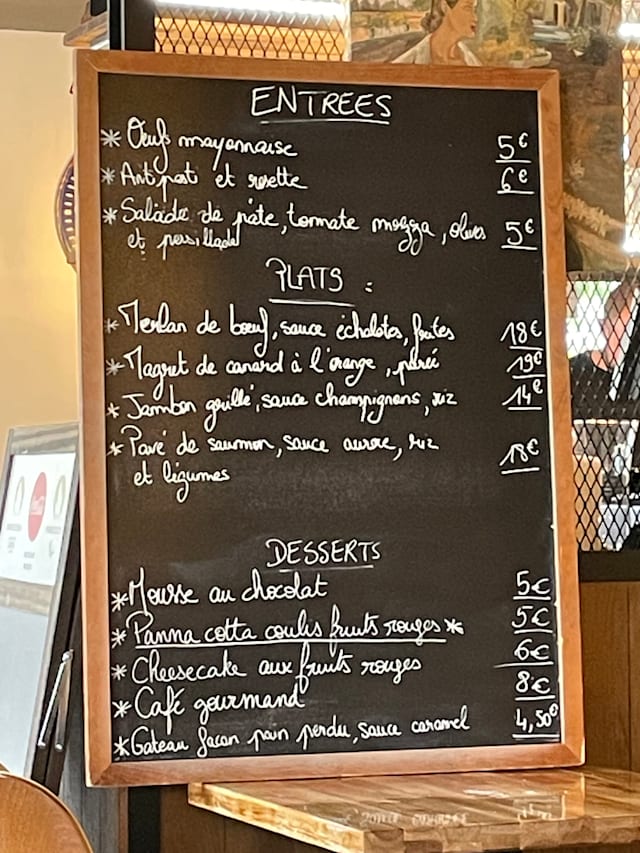 ENTREES
* Œufs mayonnaise 5€
* Antipasti et rosette 6€
* Salade de pâte, tomate mozza, olives 5€
et persillade
PLATS :
* Merlan de bœuf, sauce échalotes, frites 18€
* Magret de canard à l'orange, purée 19€
* Jambon grillé, sauce champignons, riz 14€
* Pavé de saumon, sauce aurore, riz 18€
et légumes
DESSERTS
* Mousse au chocolat 5€
* Panna cotta coulis fruits rouges * 5€
* Cheesecake aux fruits rouges 6€
* Café gourmand 8€
* Gateau facon pain perdu, sauce caramel 4,50€